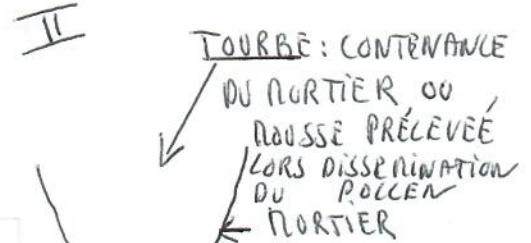 II
TOURBE : CONTENANCE
DU MORTIER, OU
MOUSSE PRÉLEVEÉ
LORS DISSEMINATION
DU POLLEN
MORTIER